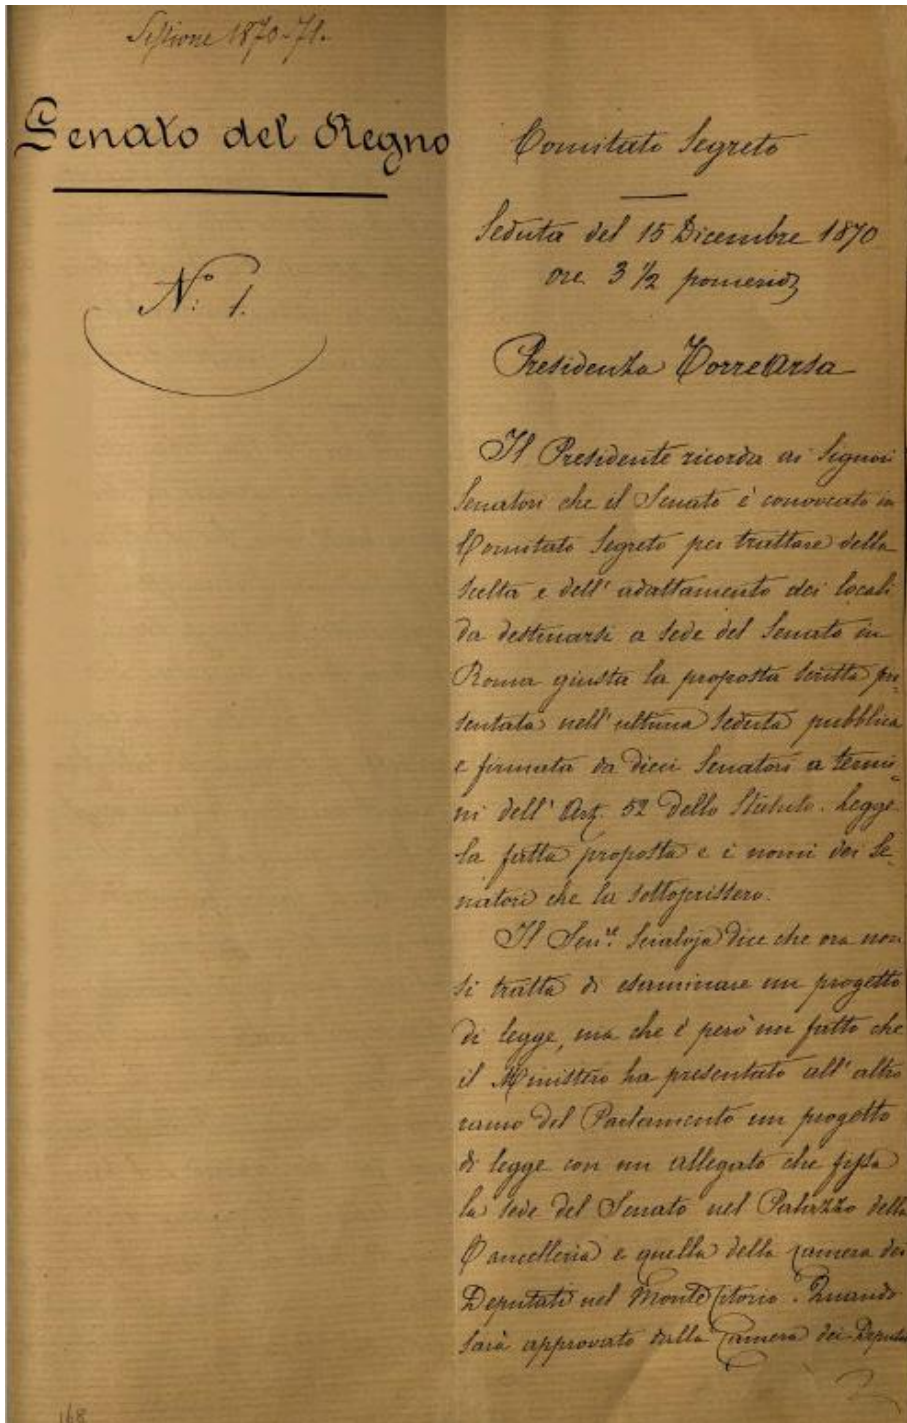 Sessione 1870-71.
Senato del Regno
N.° 1.
Comitato Segreto
Seduta del 15 Dicembre 1870
ore 3 1/2 pomerid
Presidenza Torrearsa
Il Presidente ricorda ai Signori
Senatori che il Senato è convocato in
Comitato Segreto per trattare della
scelta e dell'adattamento dei locali
da destinarsi a sede del Senato in
Roma giusta la proposta scritta pre-
sentata nell'ultima seduta pubblica
e firmata da dieci Senatori a termi-
ni dell'Art. 52 dello Statuto. Legge
la fatta proposta e i nomi dei Se-
natori che la sottoscrissero.
Il Sen.re Scialoja dice che ora non
si tratta di esaminare un progetto
di legge, ma che è però un fatto che
il Ministero ha presentato all'altro
ramo del Parlamento un progetto
di legge con un allegato che fissa
la sede del Senato nel Palazzo della
Cancelleria e quella della Camera dei
Deputati nel Monte Citorio. Quando
sarà approvato dalla Camera dei Deputa
168